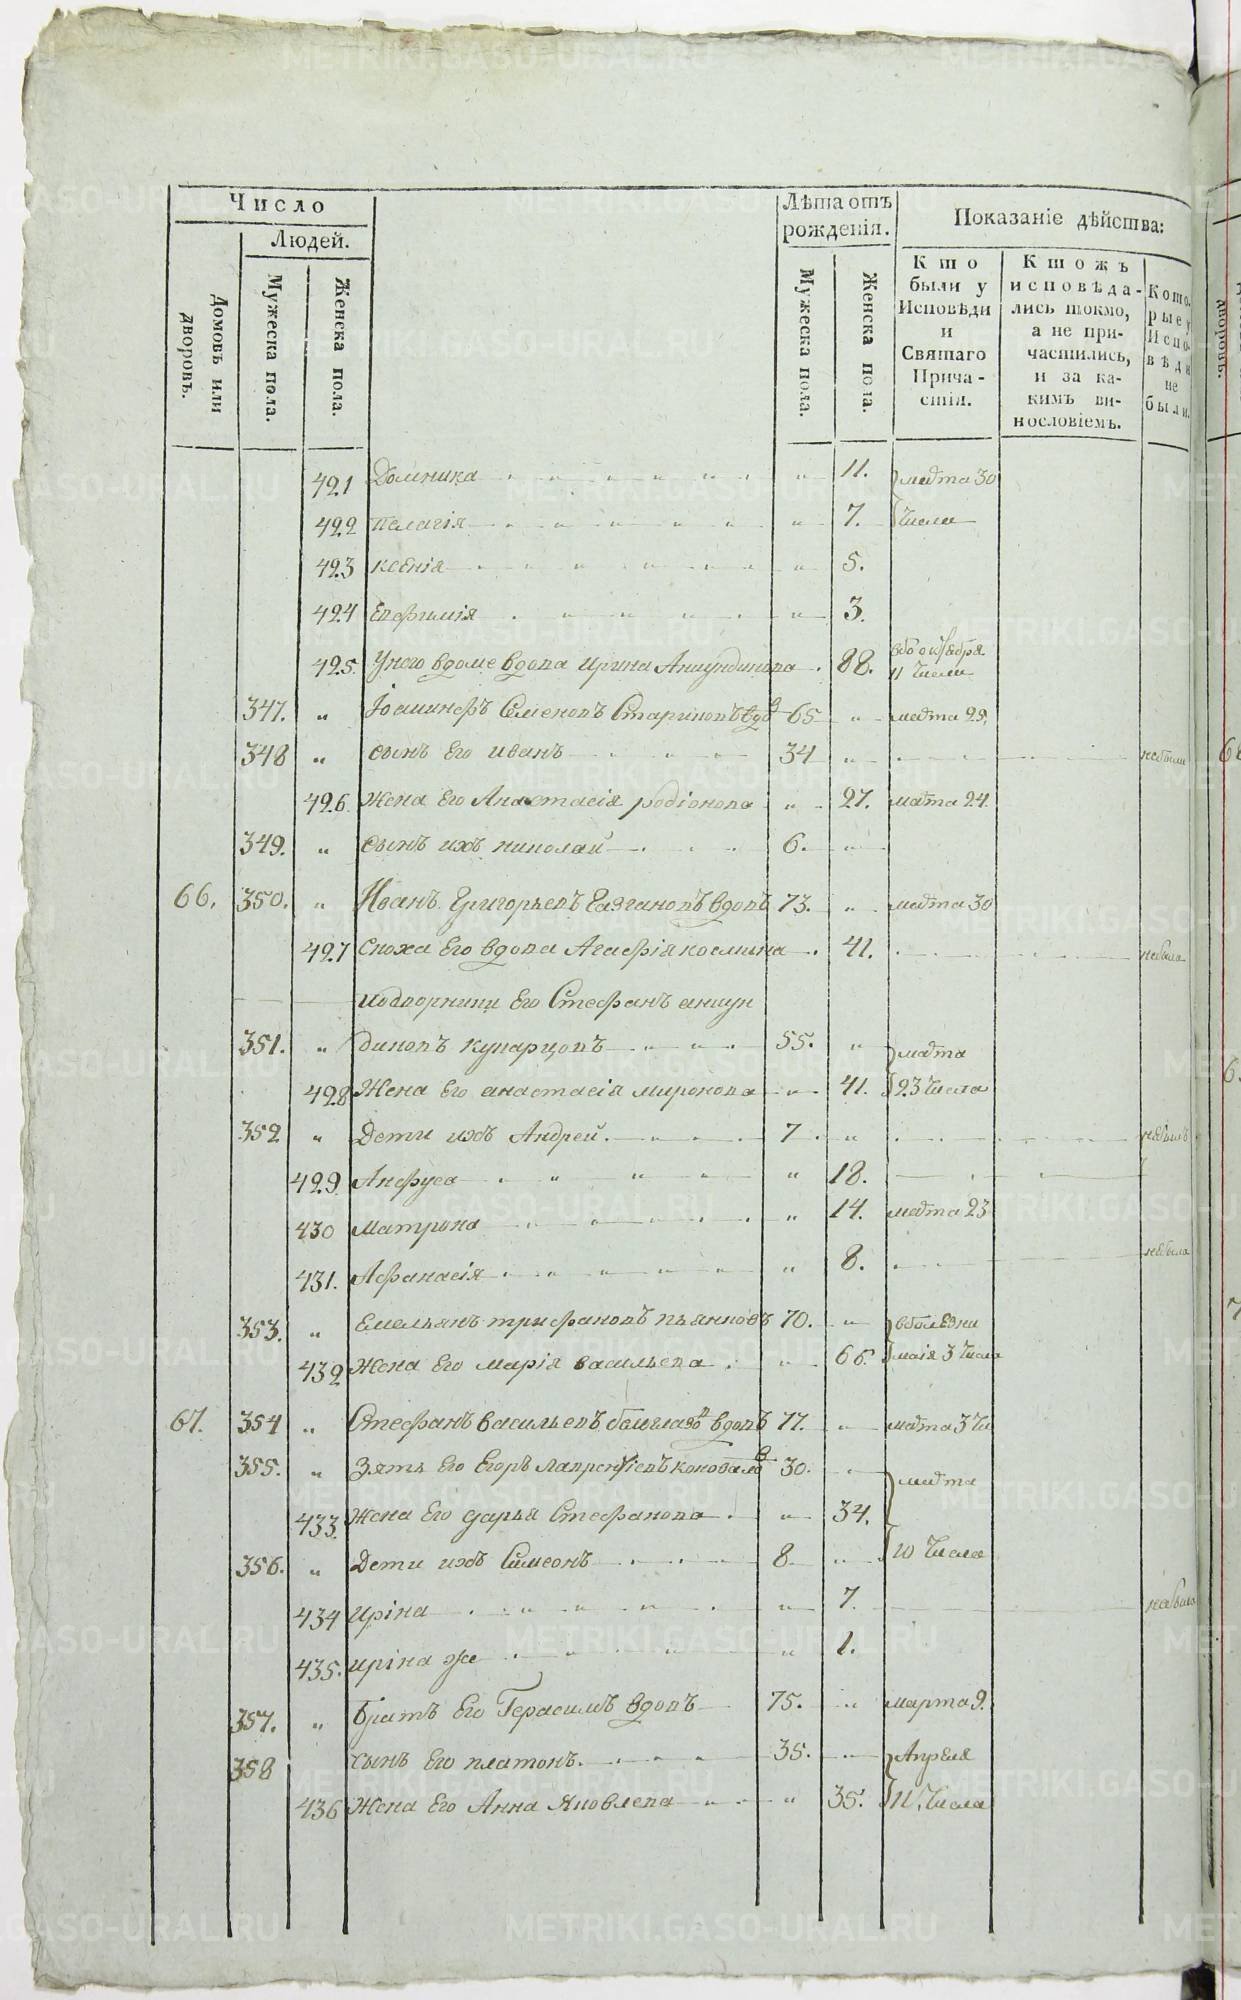 Число
Людей.
Домовъ или дворовъ.
Мужеска пола.
Женска пола.
Лѣта отъ рожденія.
Мужеска пола.
Женска пола.
Показаніе дѣйства:
Кто были у Исповѣди и Святаго Прича-стія.
Ктожъ исповѣда-лись токмо, а не при-частились, и за ка-кимъ ви-нословіемъ.
Кото-рые у Испо-вѣди не были.
421 Домника " 11. марта 30
422 пелагія " 7. Числа
423 ксенія " 5.
424 Евфимія " 3.
425. Унего вдоме вдова ирина 88. 11 Числа
347. " Семеновъ Стариковъ вдовъ 65 " марта 29.
348 " сынъ Его иванъ 34 " небыли
426. Жена Его Анастасія родіонова " 27. марта 24.
349. " сынъ ихъ николай 6. "
66. 350. " Иванъ Григорьевъ вдовъ 73. " марта 30
427 сноха Его вдова Агафія космина 41. небыла
подворники Его Стефанъ
351. " 55. " марта
428 Жена Его анастасія миронова " 41. 23 Числа
352 " Дети ихъ Андрей. 7. " небылъ
429. Анфуса " 18.
430 матрона " 14. марта 23
431. Афанасія " 8. небыла
353. " Емельянъ трифановъ пьянковъ 70. " вболезни
432 Жена Его марія васильева " 66. маія 3 Числа
67. 354 " Стефанъ васильевъ вдовъ 77. " марта 3 Чи
355. " Зять Его Егоръ лаврентіевъ коноваловъ 30. " марта
433. Жена Его дарья Стефанова " 34.
356. " Дети ихъ Симеонъ 8 " 10 Числа
434 ирина " 7. небыла
435. ирина же " 1.
357. " братъ Его Герасимъ вдовъ 75. " марта 9.
358 сынъ Его платонъ. 35. " Апреля
436 Жена Его Анна Яковлева " 35. 11. Числа
METRIKI.GASO-URAL.RU